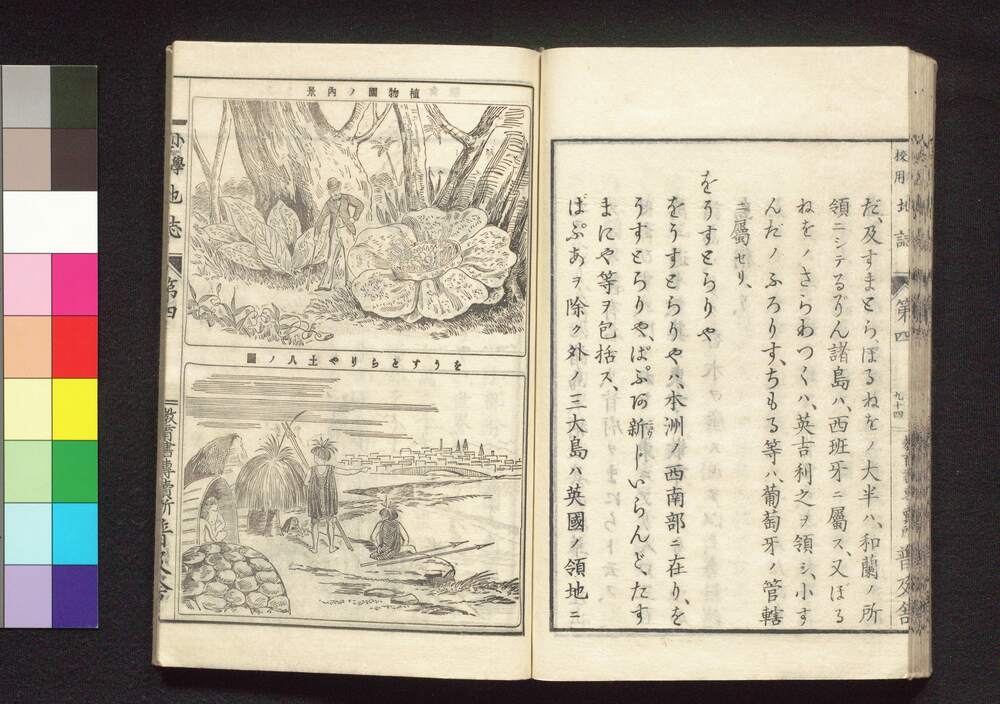 だ、及すまとら、ぼるねをノ大半ハ、和蘭ノ所
領ニシテるぞん諸島ハ、西班牙ニ屬ス、又ぼる
ねをノさらわつくハ、英吉利之ヲ領シ、小す
んだノふろりす、ちもる等ハ、葡萄牙ノ管轄
ニ屬セリ、
をうすとらりや
をうすとらりやハ、本洲ノ西南部ニ在リ、を
うすとらりや、ぱぷあ、新じいらんど、たす
まにや等ヲ包括ス、
ぱぷあヲ除ク外ノ三大島ハ英國ノ領地ニ
校用
地誌
第四
九十四
普及舎
植物園ノ内景
をうすとらりや土人ノ圖
小學地誌
第四